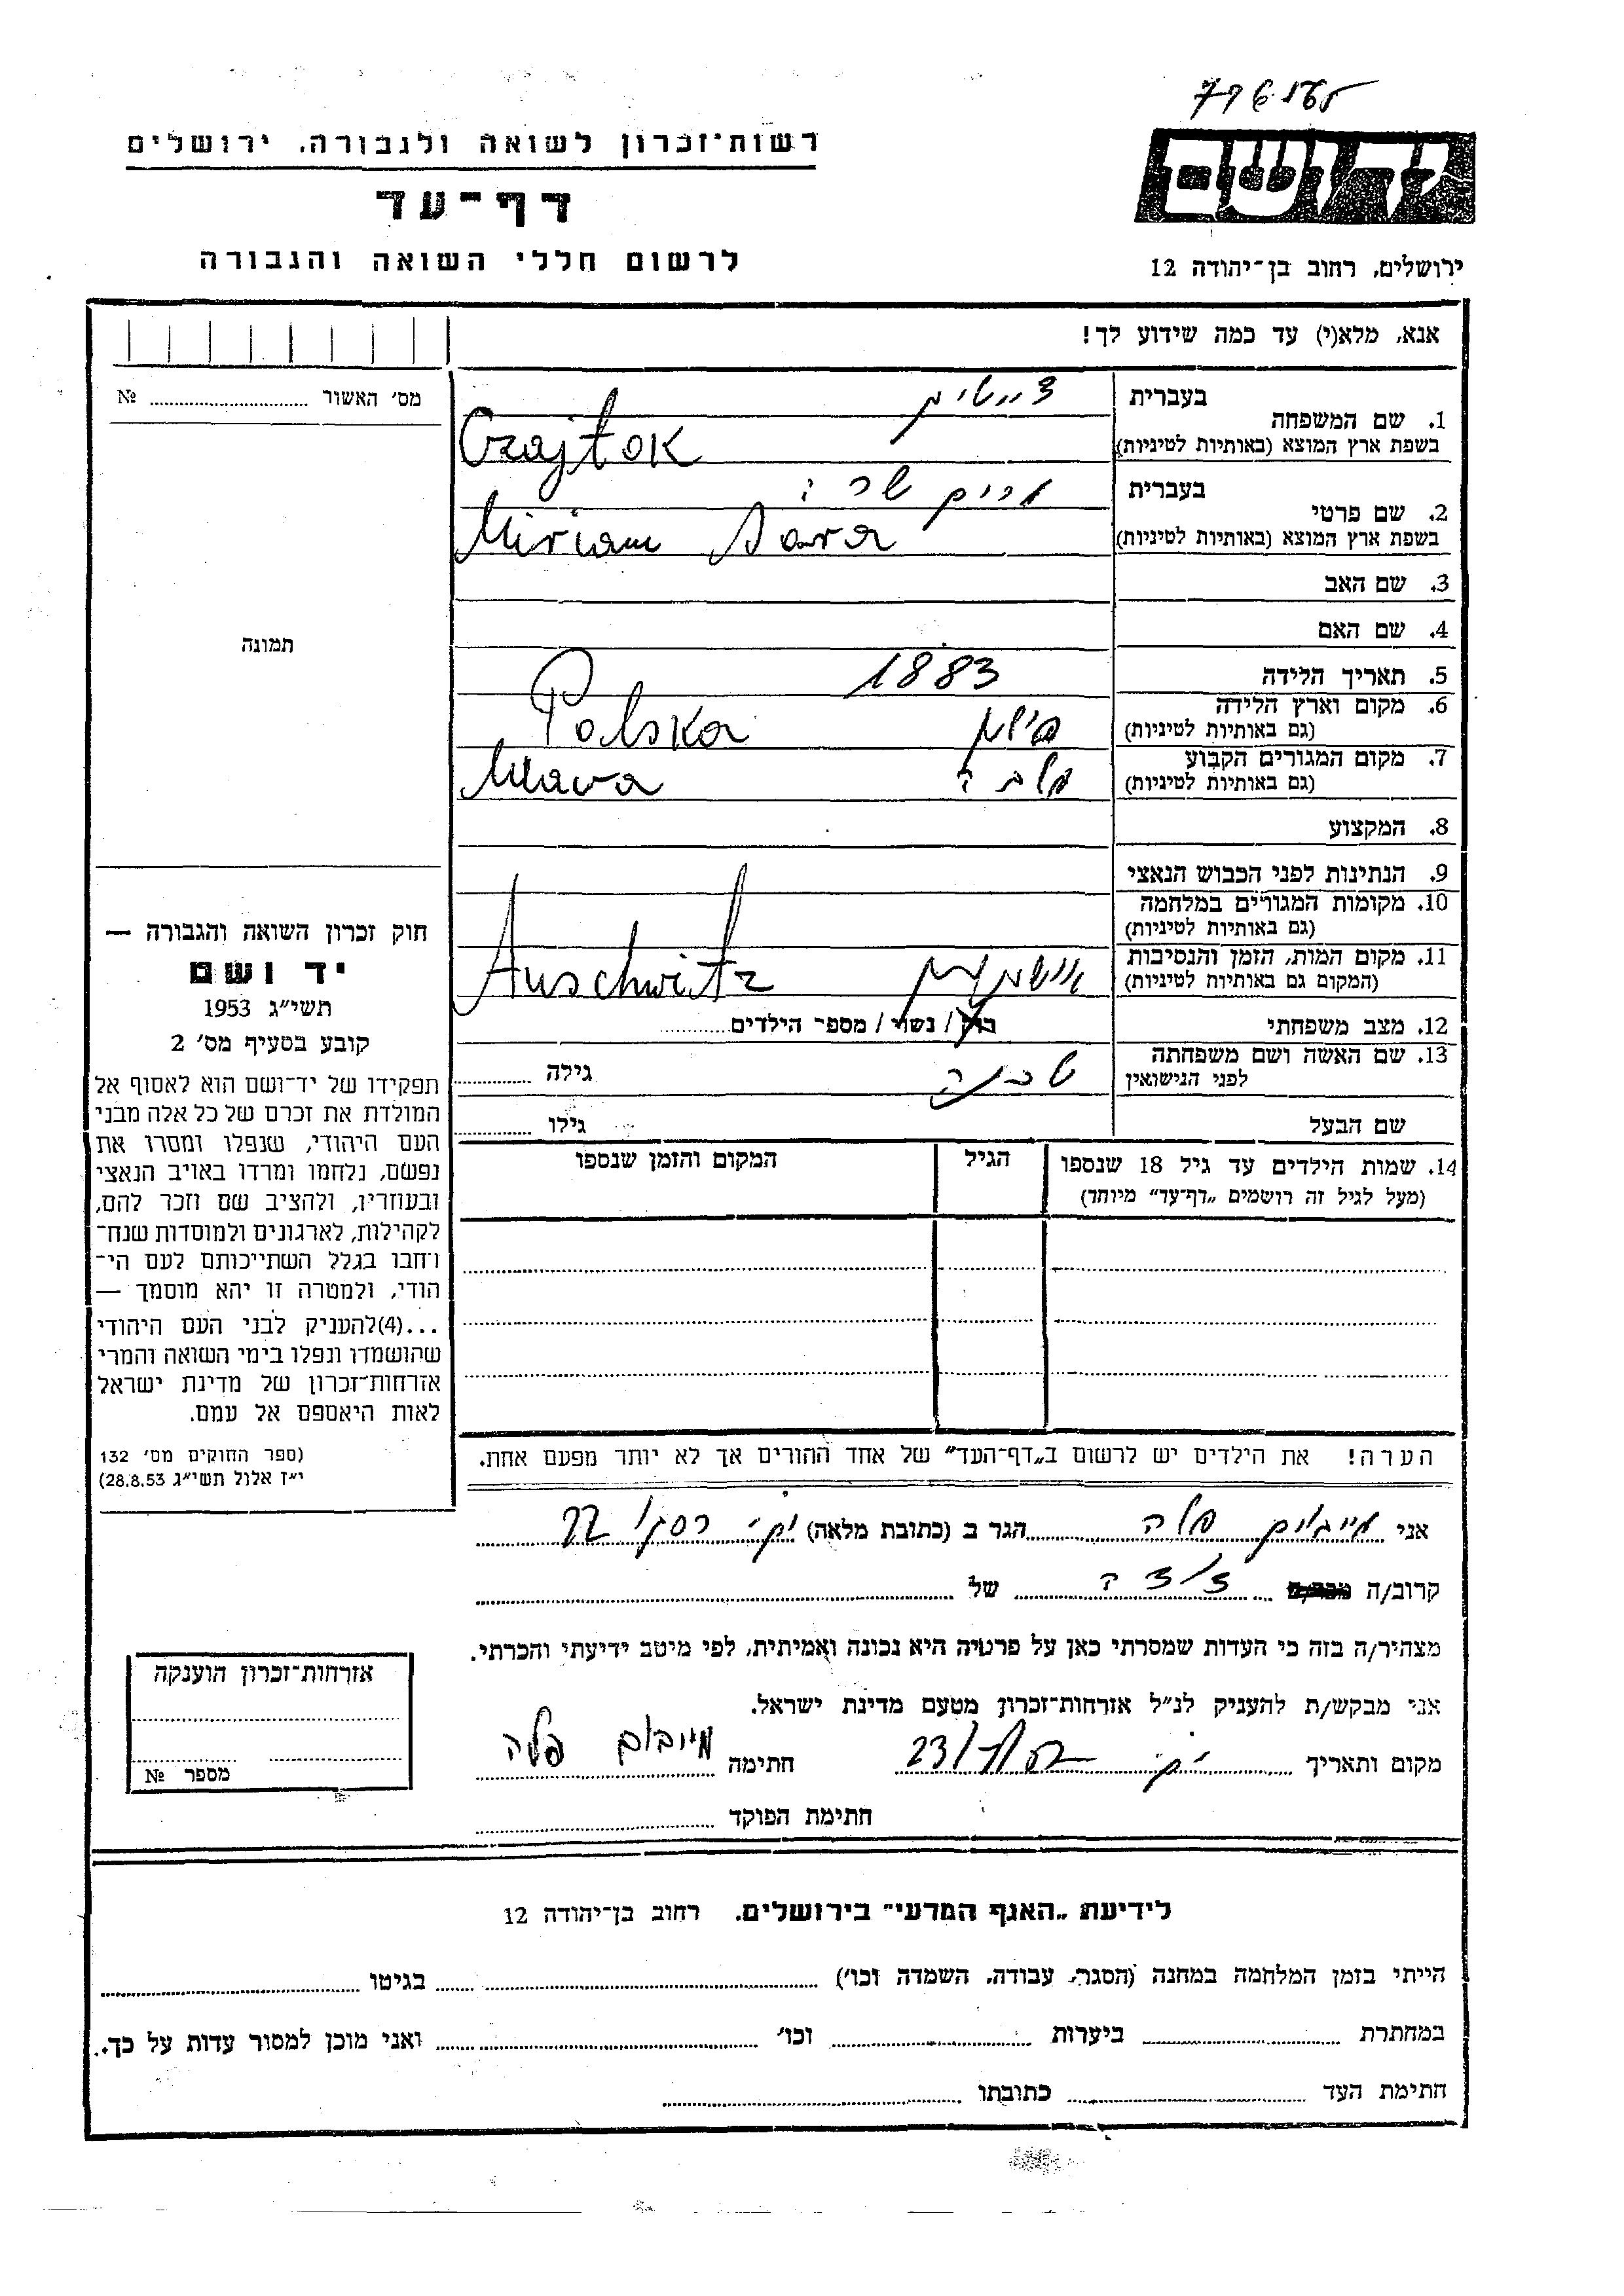 רשות־זכרון לשואה ולגבורה, ירושלים
דף־עד
לרשום חללי השואה והגבורה
יד ושם
ירושלים, רחוב בן־יהודה 12
אנא, מלא(י) עד כמה שידוע לך!
מס׳ האשור № 
1. שם המשפחה בעברית
בשפת ארץ המוצא (באותיות לטיניות) Czajtok
2. שם פרטי בעברית מרים שרה
בשפת ארץ המוצא (באותיות לטיניות) Miriam Sara
3. שם האב
4. שם האם
5. תאריך הלידה 1883
6. מקום וארץ הלידה
(גם באותיות לטיניות) פולין Polska
7. מקום המגורים הקבוע
(גם באותיות לטיניות) מלבה Mlava
8. המקצוע
9. הנתינות לפני הכבוש הנאצי
10. מקומות המגורים במלחמה
(גם באותיות לטיניות)
11. מקום המות, הזמן והנסיבות
(המקום גם באותיות לטיניות) Auschwitz
12. מצב משפחתי רוק / נשוי / מספר הילדים
13. שם האשה ושם משפחתה
לפני הנישואין גילה
שם הבעל גילו
14. שמות הילדים עד גיל 18 שנספו הגיל המקום והזמן שנספו
(מעל לגיל זה רושמים „דף־עד” מיוחד)
הערה! את הילדים יש לרשום ב„דף־העד” של אחד ההורים אך לא יותר מפעם אחת.
תמונה
חוק זכרון השואה והגבורה —
יד ושם
תשי״ג 1953
קובע בסעיף מס׳ 2
תפקידו של יד־ושם הוא לאסוף אל
המולדת את זכרם של כל אלה מבני
העם היהודי, שנפלו ומסרו את
נפשם, נלחמו ומרדו באויב הנאצי
ובעוזריו, ולהציב שם וזכר להם,
לקהילות, לארגונים ולמוסדות שנח־
רחבו בגלל השתייכותם לעם הי־
הודי, ולמטרה זו יהא מוסמך —
...(4)להעניק לבני העם היהודי
שהושמדו ונפלו בימי השואה והמרי
אזרחות־זכרון של מדינת ישראל
לאות היאספם אל עמם.
(ספר החוקים מס׳ 132
י״ז אלול תשי״ג 28.8.53)
אני הגר ב (כתובת מלאה)
קרוב/ה של
מצהיר/ה בזה כי העדות שמסרתי כאן על פרטיה היא נכונה ואמיתית, לפי מיטב ידיעתי והכרתי.
אני מבקש/ת להעניק לנ״ל אזרחות־זכרון מטעם מדינת ישראל.
מקום ותאריך חתימה
חתימת הפוקד
אזרחות־זכרון הוענקה
מספר №
לידיעת „האגף המדעי” בירושלים, רחוב בן־יהודה 12
הייתי בזמן המלחמה במחנה (הסגר, עבודה, השמדה וכו׳) בגיטו
במחתרת ביערות וכו׳ ואני מוכן למסור עדות על כך.
חתימת העד כתובתו